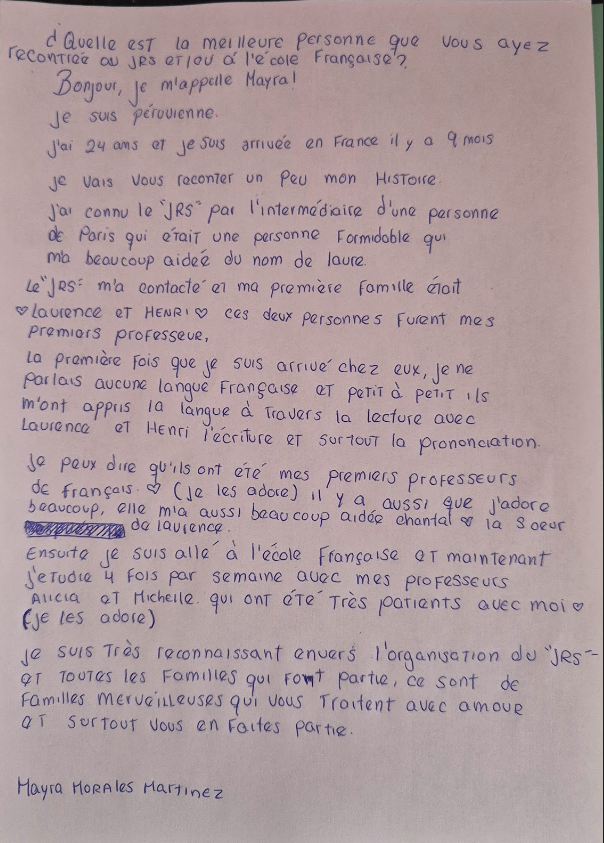 d Quelle est la meilleure personne que vous ayez
recontrée au JRS et/ou à l'école Française?
Bonjour, je m'appelle Mayra!
je suis péruvienne.
j'ai 24 ans et je suis arrivée en France il y a 9 mois
je vais vous reconter un peu mon Histoire.
j'ai connu le "JRS" par l'intermédiaire d'une personne
de Paris qui était une personne Formidable qui
m'a beaucoup aideé du nom de laure.
Le "JRS" m'a contacté et ma première Famille était
♡Laurence et HENRI♡ ces deux personnes Furent mes
premiers professeur,
la première Fois que je suis arrivé chez eux, je ne
parlais aucune langue Française et petit à petit ils
m'ont appris la langue à travers la lecture avec
Laurence et Henri l'écriture et surtout la prononciation.
Je peux dire qu'ils ont été mes premiers professeurs
de français. ♡ (je les adore) il y a aussi que j'adore
beaucoup, elle m'a aussi beaucoup aidée chantal ♡ la soeur
de laurence.
Ensuite je suis allé à l'école Française et maintenant
j'etudie 4 fois par semaine avec mes professeurs
Alicia et Michelle. qui ont été très patients avec moi ♡
(je les adore)
je suis Très reconnaissant envers l'organisation du "JRS"
et toutes les Familles qui font partie, ce sont de
Familles merveilleuses qui vous Traitent avec amour
et surtout vous en Faites partie.
Mayra Morales Martinez